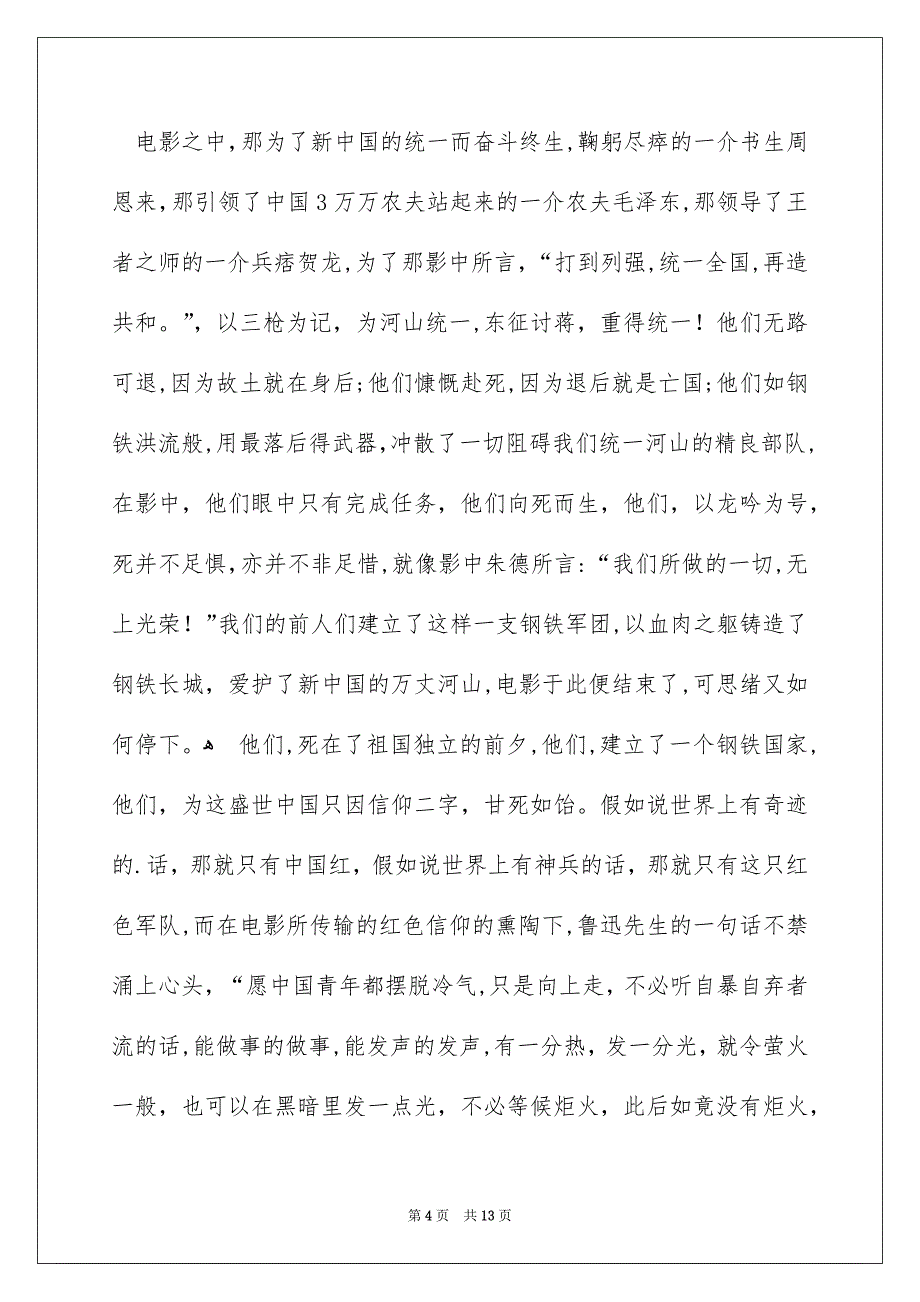 电影之中，那为了新中国的统一而奋斗终生,鞠躬尽瘁的一介书生周
恩来，那引领了中国 3 万万农夫站起来的一介农夫毛泽东,那领导了王
者之师的一介兵痞贺龙,为了那影中所言，“打到列强,统一全国,再造
共和。”，以三枪为记，为河山统一,东征讨蒋，重得统一！他们无路
可退,因为故土就在身后;他们慷慨赴死,因为退后就是亡国;他们如钢
铁洪流般,用最落后得武器,冲散了一切阻碍我们统一河山的精良部队,
在影中，他们眼中只有完成任务，他们向死而生，他们，以龙吟为号，
死并不足惧，亦并不非足惜,就像影中朱德所言:“我们所做的一切,无
上光荣！”我们的前人们建立了这样一支钢铁军团,以血肉之躯铸造了
钢铁长城，爱护了新中国的万丈河山,电影于此便结束了,可思绪又如
何停下。ﻫ 他们,死在了祖国独立的前夕,他们,建立了一个钢铁国家,
他们，为这盛世中国只因信仰二字，甘死如饴。假如说世界上有奇迹
的.话，那就只有中国红，假如说世界上有神兵的话，那就只有这只红
色军队,而在电影所传输的红色信仰的熏陶下,鲁迅先生的一句话不禁
涌上心头，“愿中国青年都摆脱冷气,只是向上走，不必听自暴自弃者
流的话,能做事的做事,能发声的发声,有一分热，发一分光，就令萤火
一般，也可以在黑暗里发一点光，不必等候炬火，此后如竟没有炬火,
第 4 页 共 13 页